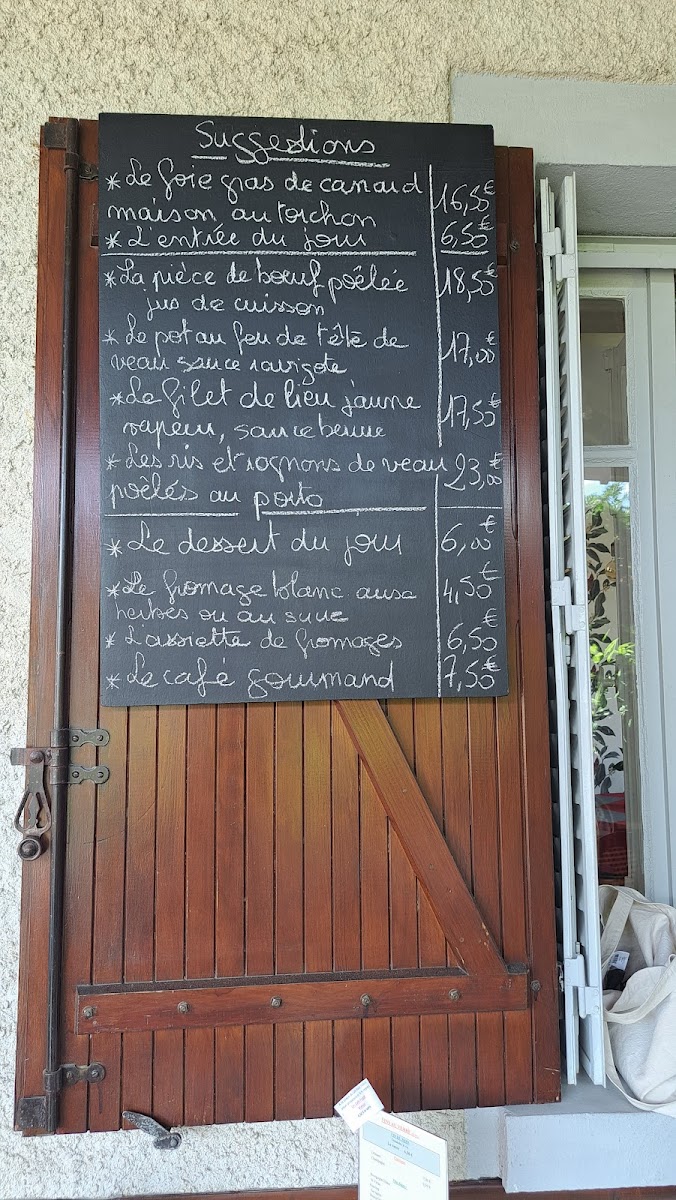 Suggestions
* Le foie gras de canard
maison, au torchon 16,50€
* L'entrée du jour 6,50€
* La pièce de bœuf poêlée 18,50€
jus de cuisson
* Le pot au feu de tête de
veau sauce ravigote 17,00€
* Le filet de lieu jaune 17,50€
vapeur, sauce beurre
* Les ris et rognons de veau 23,00€
poêlés au porto
* Le dessert du jour 6,00€
* Le fromage blanc aux 4,50€
herbes ou au sucre
* L'assiette de fromages 6,50€
* Le café gourmand 7,50€